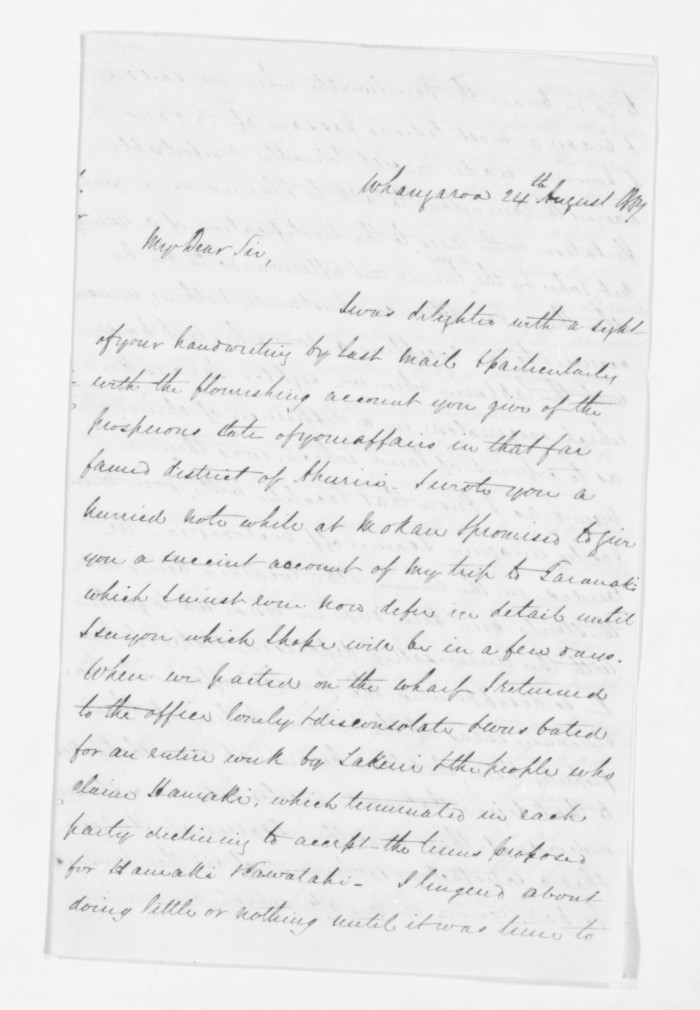 Whangaroa 24th August 1857
My Dear Sir,
I was delighted with a sight
of your handwriting by last mail & particularly
with the flourishing account you give of the
prosperous state of your affairs in that far
famed district of Ahuriri. I wrote you a
hurried note while at Mokau & promised to give
you a succinct account of my trip to Taranaki
which I must even now defer in detail until
I see you which I hope will be in a few days.
When we parted on the wharf I returned
to the office lonely & disconsolate & was bated
for an entire week by & the people who
claim Hauraki, which terminated in each
party declining to accept the terms proposed
for Hauraki & - I lingered about
doing little or nothing until it was time to